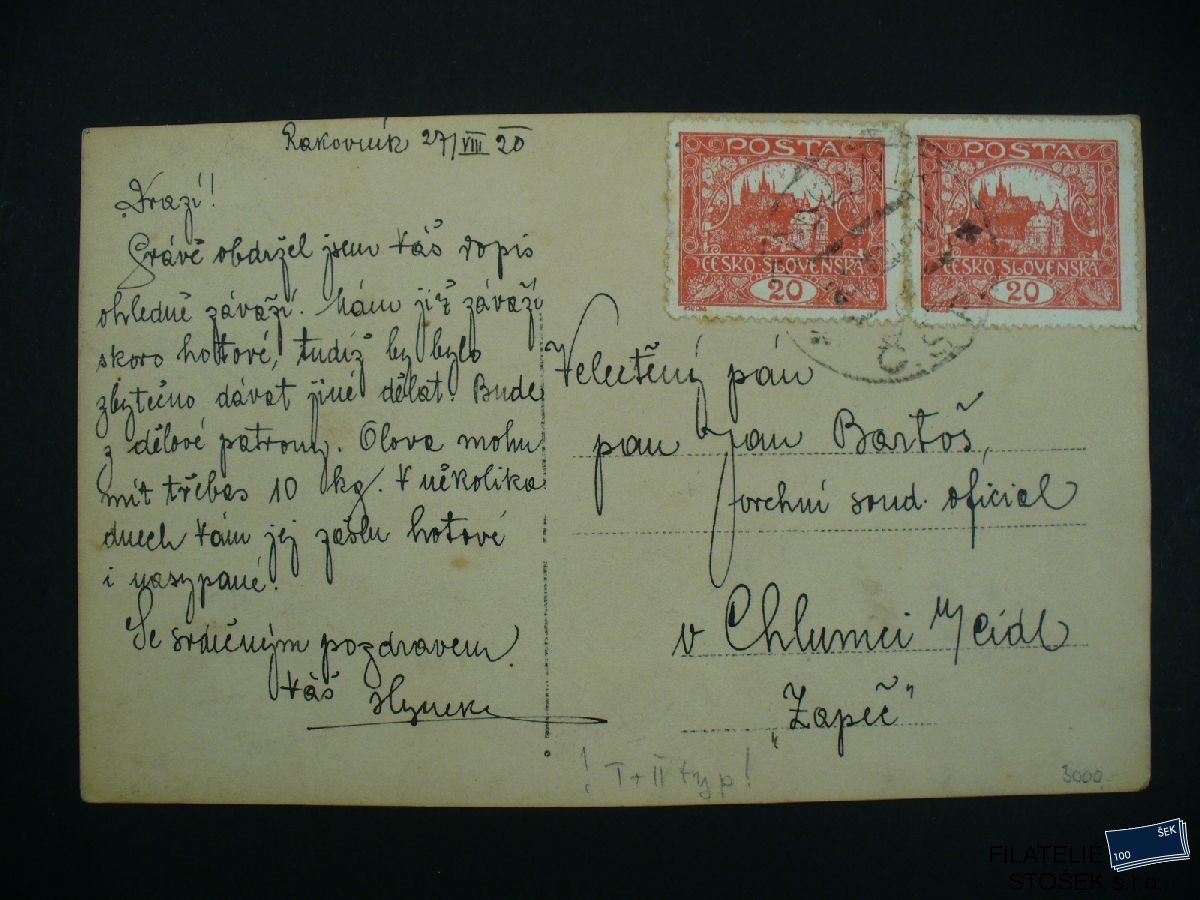 Rakovník 27/VIII 20
Drazí!
Právě obdržel jsem Váš dopis
ohledně závaží. Mám již závaží
skoro hotové, tudíž by bylo
zbytečno dávat jiné dělat. Bude
z dělové patrony. Olova mohu
mít třebas 10 kg. V několika
dnech Vám jej zašlu hotové
i nasypané.
Se srdečným pozdravem
Váš Hynek
POSTA
ČESKO-SLOVENSKÁ
20
POSTA
ČESKO-SLOVENSKÁ
20
Velectěný pán
pan Jan Bartoš,
vrchní soud. oficial
v Chlumci n/Cidl
"Zapeč"
! I + II typ!
3000
100 ŠEK
FILATELIE
STOŠEK s.r.o.